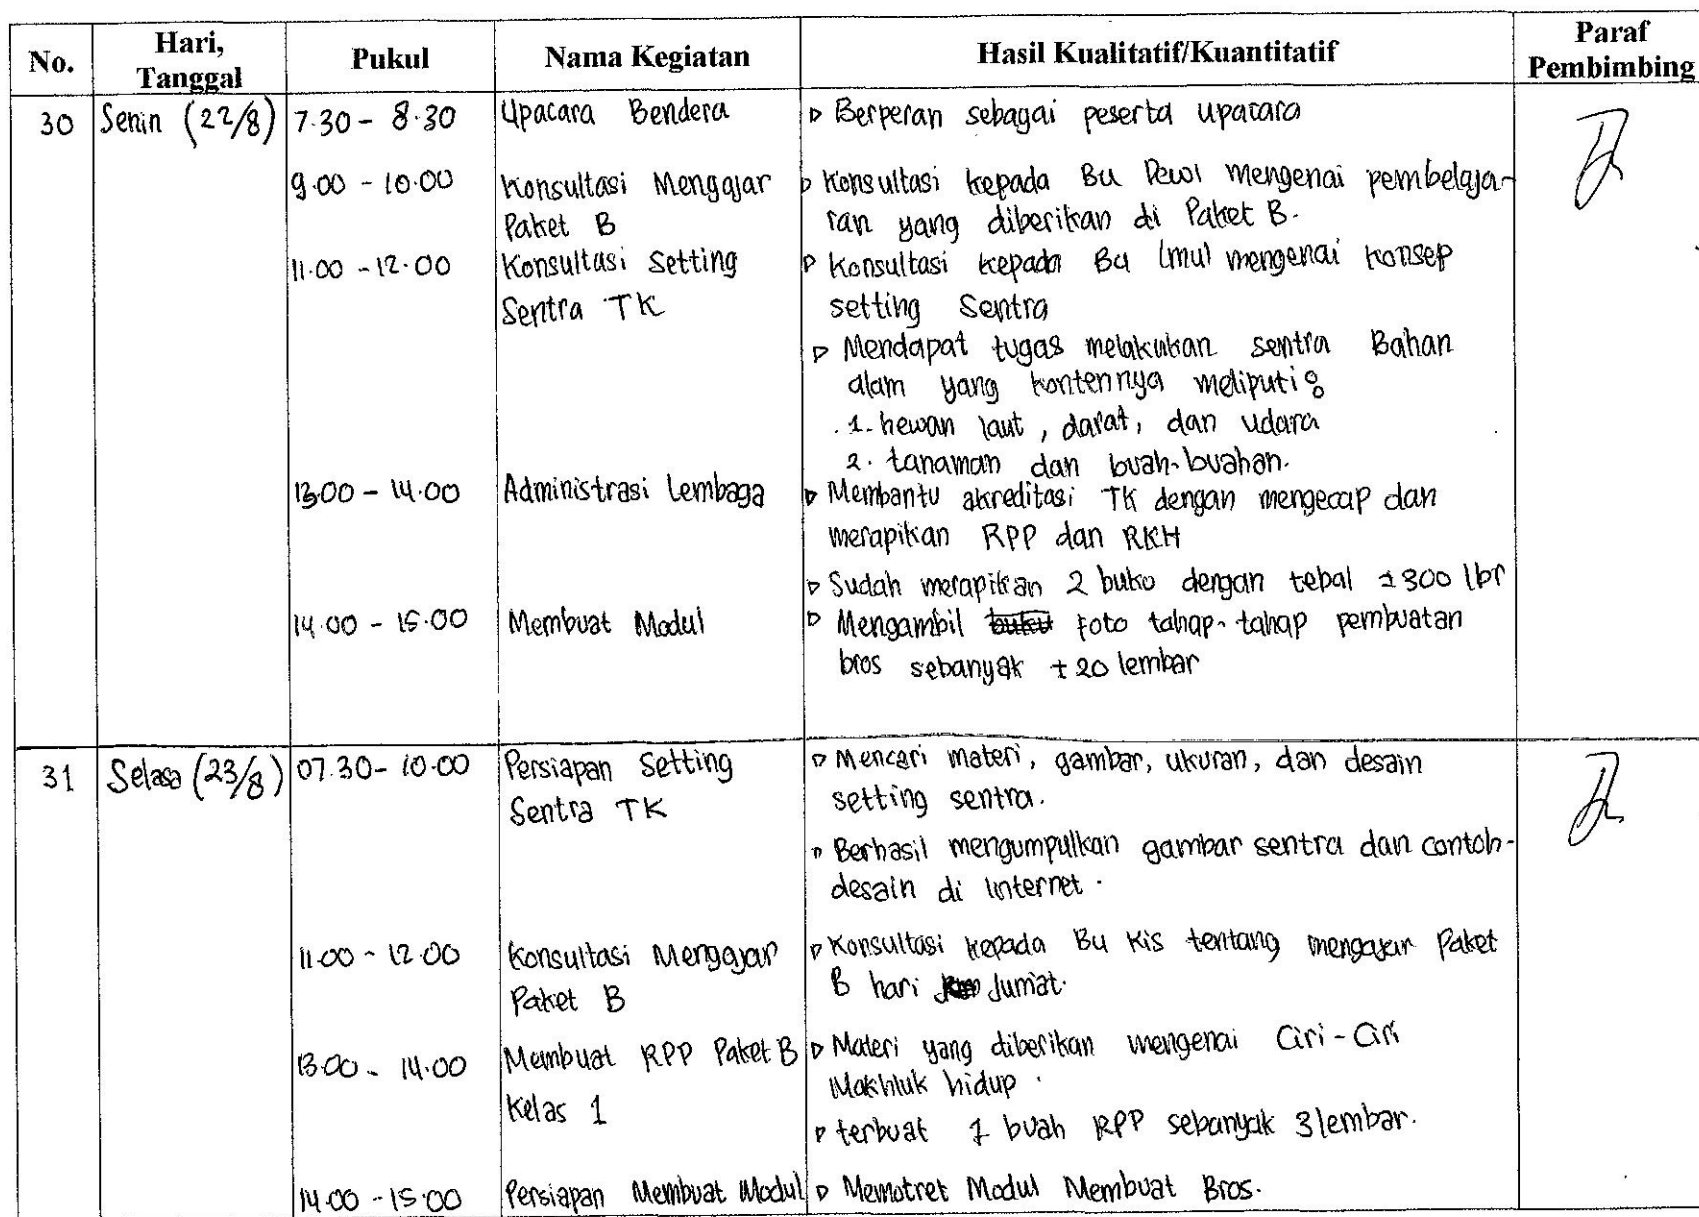 No. Hari, Tanggal Pukul Nama Kegiatan Hasil Kualitatif/Kuantitatif Paraf Pembimbing
30 Senin (22/8) 7.30 - 8.30 Upacara Bendera ▷ Berperan sebagai peserta upacara
9.00 - 10.00 Konsultasi Mengajar ▷ Konsultasi kepada Bu Dewi mengenai pembelaja-
Paket B ran yang diberikan di Paket B.
11.00 - 12.00 Konsultasi Setting ▷ Konsultasi kepada Bu mengenai konsep
Sentra TK setting Sentra
▷ Mendapat tugas melakukan sentra Bahan
alam yang kontennya meliputi :
1. hewan laut, darat, dan udara
2. tanaman dan buah-buahan.
13.00 - 14.00 Administrasi Lembaga ▷ Membantu akreditasi TK dengan mengecap dan
merapikan RPP dan RKH
▷ Sudah merapikan 2 buku dengan tebal ±300 lbr
14.00 - 15.00 Membuat Modul ▷ Mengambil buku foto tahap-tahap pembuatan
bros sebanyak ±20 lembar
31 Selasa (23/8) 07.30 - 10.00 Persiapan Setting ▷ Mencari materi, gambar, ukuran, dan desain
Sentra TK setting sentra.
▷ Berhasil mengumpulkan gambar sentra dan contoh-
desain di internet.
11.00 - 12.00 Konsultasi Mengajar ▷ Konsultasi kepada Bu Kis tentang mengajar Paket
Paket B B hari Jumat.
13.00 - 14.00 Membuat RPP Paket B ▷ Materi yang diberikan mengenai Ciri-Ciri
Kelas 1 Makhluk hidup.
▷ terbuat 1 buah RPP sebanyak 3 lembar.
14.00 - 15.00 Persiapan Membuat Modul ▷ Memotret Modul Membuat Bros.